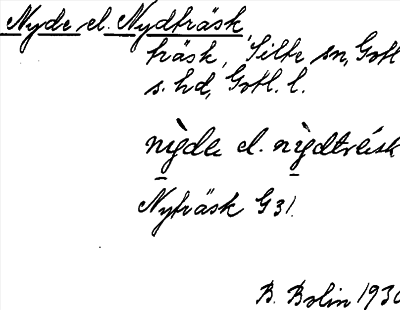 Nyde el. Nydträsk,
träsk, Silte sn, Gotl
s. hd, Gotl. l.
nỳde el. nỳdtreisk
Nyträsk G 31.
B. Bolin 1930